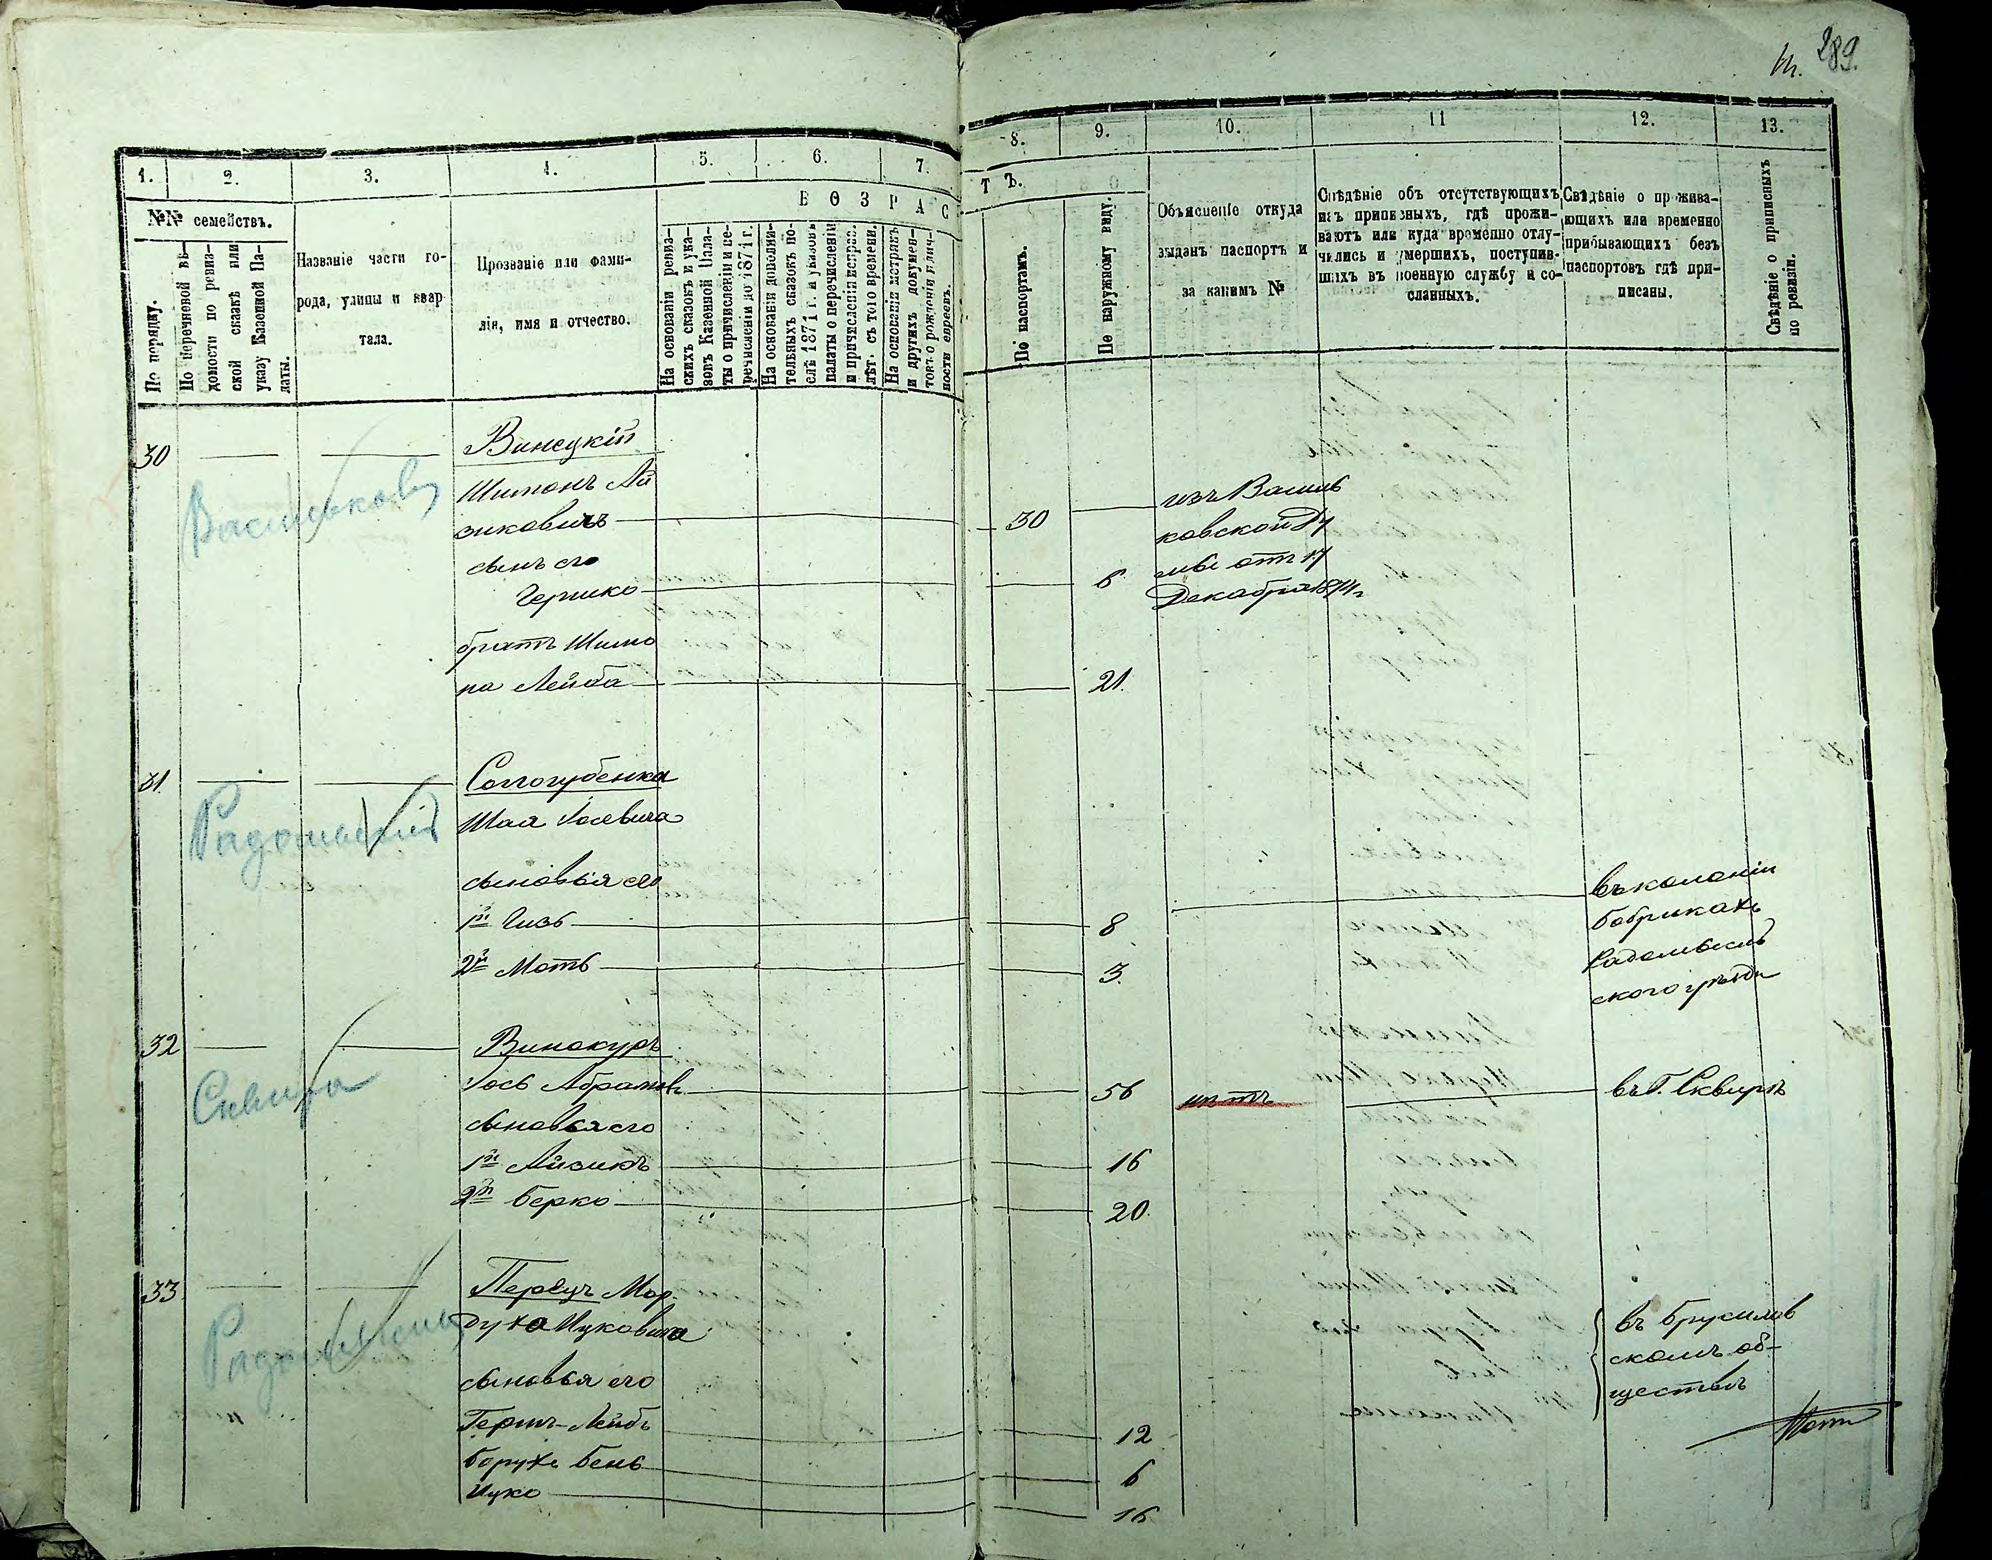 289.
1.
2.
3.
4.
5.
6.
7.
8.
9.
10.
11
12.
13.
№№ семействъ.
ВОЗРАС
ТЪ.
По порядку.
По перечневой вѣ-
домости по ревиз-
ской сказкѣ или
указу Казенной Па-
латы.
Названіе части го-
рода, улицы и квар
тала.
Прозваніе или фами-
лія, имя и отчество.
На основаніи ревиз-
скихъ сказокъ и ука-
зовъ Казенной Пала-
ты о причисленіи и пе-
речисленіи до 1871 г.
На основаніи дополни-
тельныхъ сказокъ по-
слѣ 1871 г. и указовъ
палаты о перечисленіи
и причисленіи истрас.
лѣт. съ того времени.
На основаніи метрикъ
и другихъ докумен-
товъ о рожденіи и лич-
ности евреевъ.
По паспортамъ.
По наружному виду.
Объясненіе откуда
выданъ паспортъ и
за какимъ №
Свѣдѣніе объ отсутствующихъ
изъ приписныхъ, гдѣ прожи-
ваютъ или куда временно отлу-
чились и умершихъ, поступив-
шихъ въ военную службу и со-
сланныхъ.
Свѣдѣніе о прожива-
ющихъ или временно
прибывающихъ безъ
паспортовъ гдѣ при-
писаны.
Свѣдѣніе о приписныхъ
по ревизіи.
30
Васильковъ
Винецкій
Шимонъ Ай
зиковичъ
30
изъ Василь
ковской Ду
мы отъ 17
Декабря 1874 г
сынъ его
Гершко
6
братъ Шимо
на Лейба
21.
31
Сологубенка
Шая Іосевича
сыновья его
1й Гизь
8
2й Моть
3.
въ колоніи
Бобрикахъ
Радомысль
ского уѣзда
32
Сквира
Винокуръ
Іось Абрамовъ
56
нѣтъ
въ Г. Сквирѣ
сыновья его
1й Айзикъ
16
2й Берко
20.
33
Мор-
духа Ицковича
сыновья его
Герш-Лейбъ
12
Борухъ Бень
6
Ицко
16
въ Брусилов
скомъ об-
ществѣ